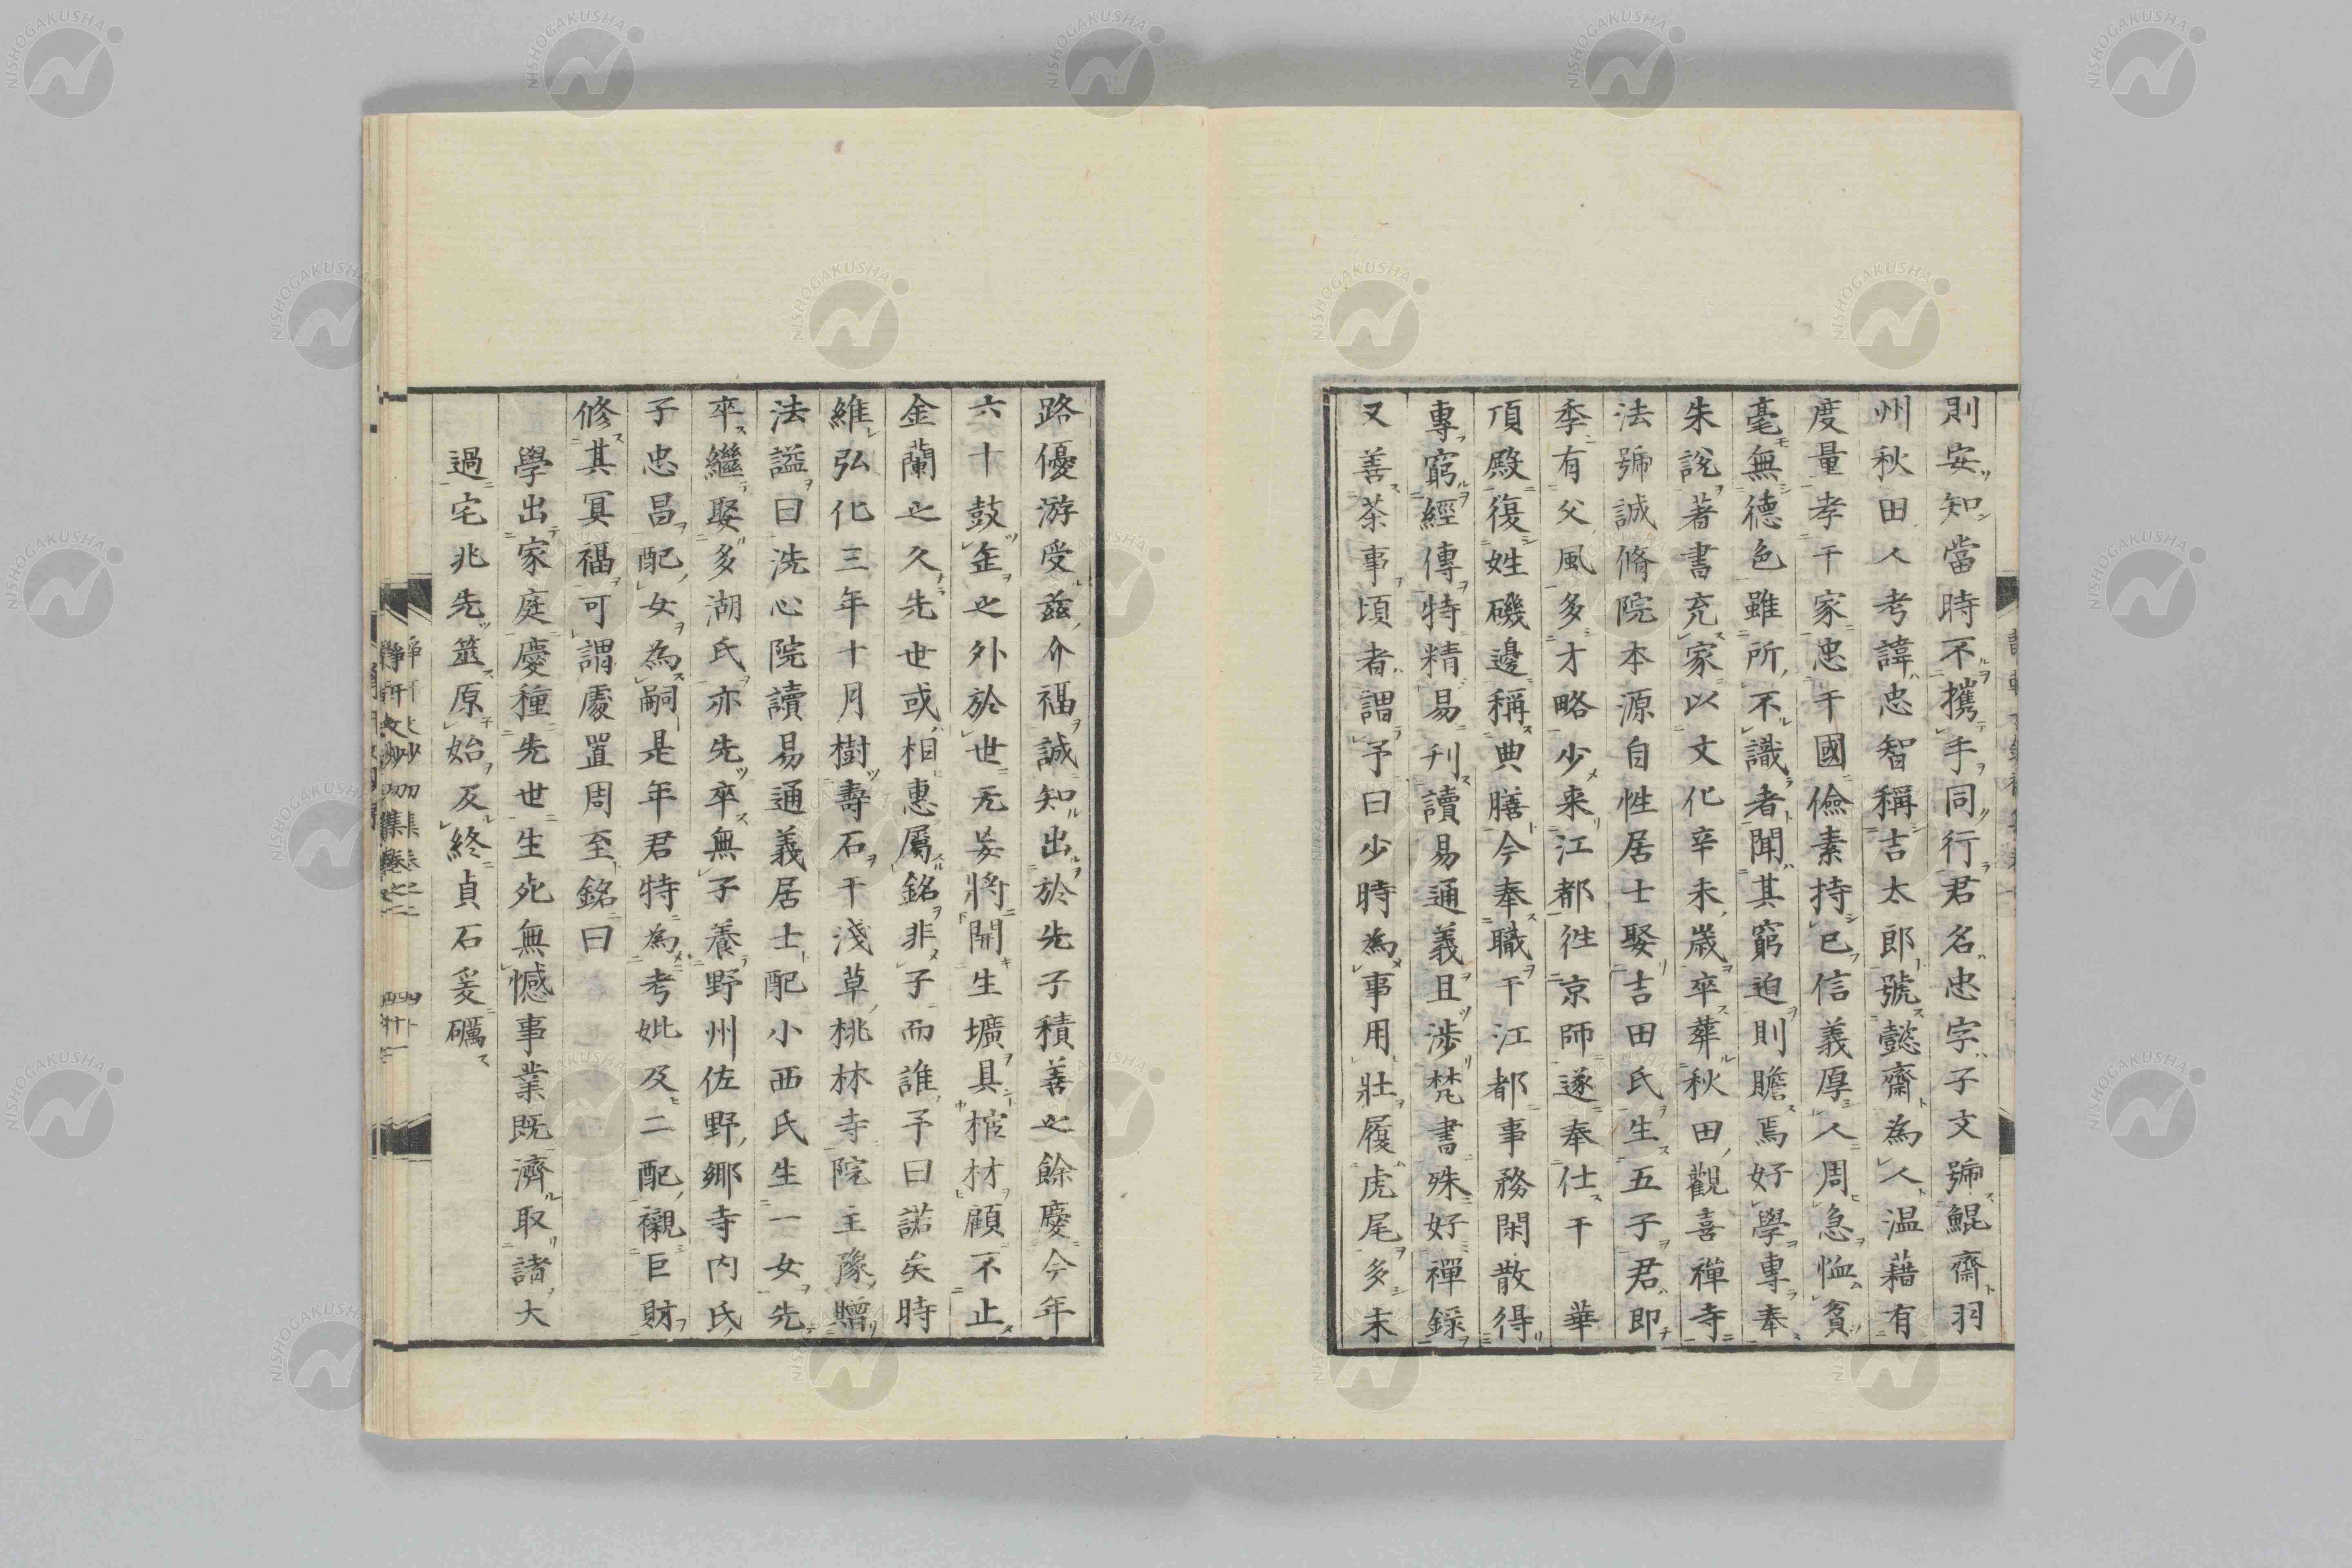 則安知當時不攜手同行君名忠字子文號鯤齋羽
州秋田人考諱忠智稱吉太郎號懿齋為人温藉有
度量孝于家忠于國儉素持已信義厚人周急恤貧
毫無德色雖所不識者聞其窮迫則贍焉好學專奉
朱說著書充家以文化辛未歲卒葬秋田觀喜禅寺
法號誠脩院本源自性居士娶吉田氏生五子君即
季有父風多才略少来江都徃京師遂奉仕于 華
頂殿復姓磯邊稱典膳今奉職于江都事務閑散得
專窮經傳特精易刊讀易通義且涉梵書殊好禪録
又善茶事頃者謂予曰少時為事用壯履虎尾多未
路優游受茲介福誠知出於先子積善之餘慶今年
六十鼓缶之外於世无妄將開生壙具棺材顧不止
金蘭之久先世或相惠属銘非子而誰予曰諾矣時
維弘化三年十月樹壽石于淺草桃林寺院主豫贈
法謚曰洗心院讀易通義居士配小西氏生一女先
卒繼娶多湖氏亦先卒無子養野州佐野鄉寺内氏
子忠昌配女為嗣是年君特為考妣及二配襯巨財
修其冥福可謂處置周至銘曰
學出家庭慶種先世生死無憾事業既濟取諸大
過宅兆先筮原始及終貞石爰礪
静軒文鈔初集卷之二
NISHOGAKUSHA